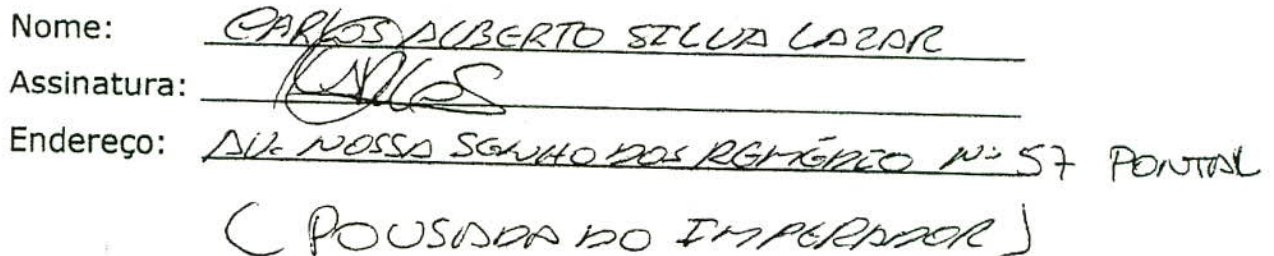 Nome: CARLOS ALBERTO SILVA LAZAR
Assinatura: Carlos
Endereço: AV. NOSSA SENHO DOS REMÉDIO Nº 57 PONTAL
(POUSADA DO IMPERADOR)